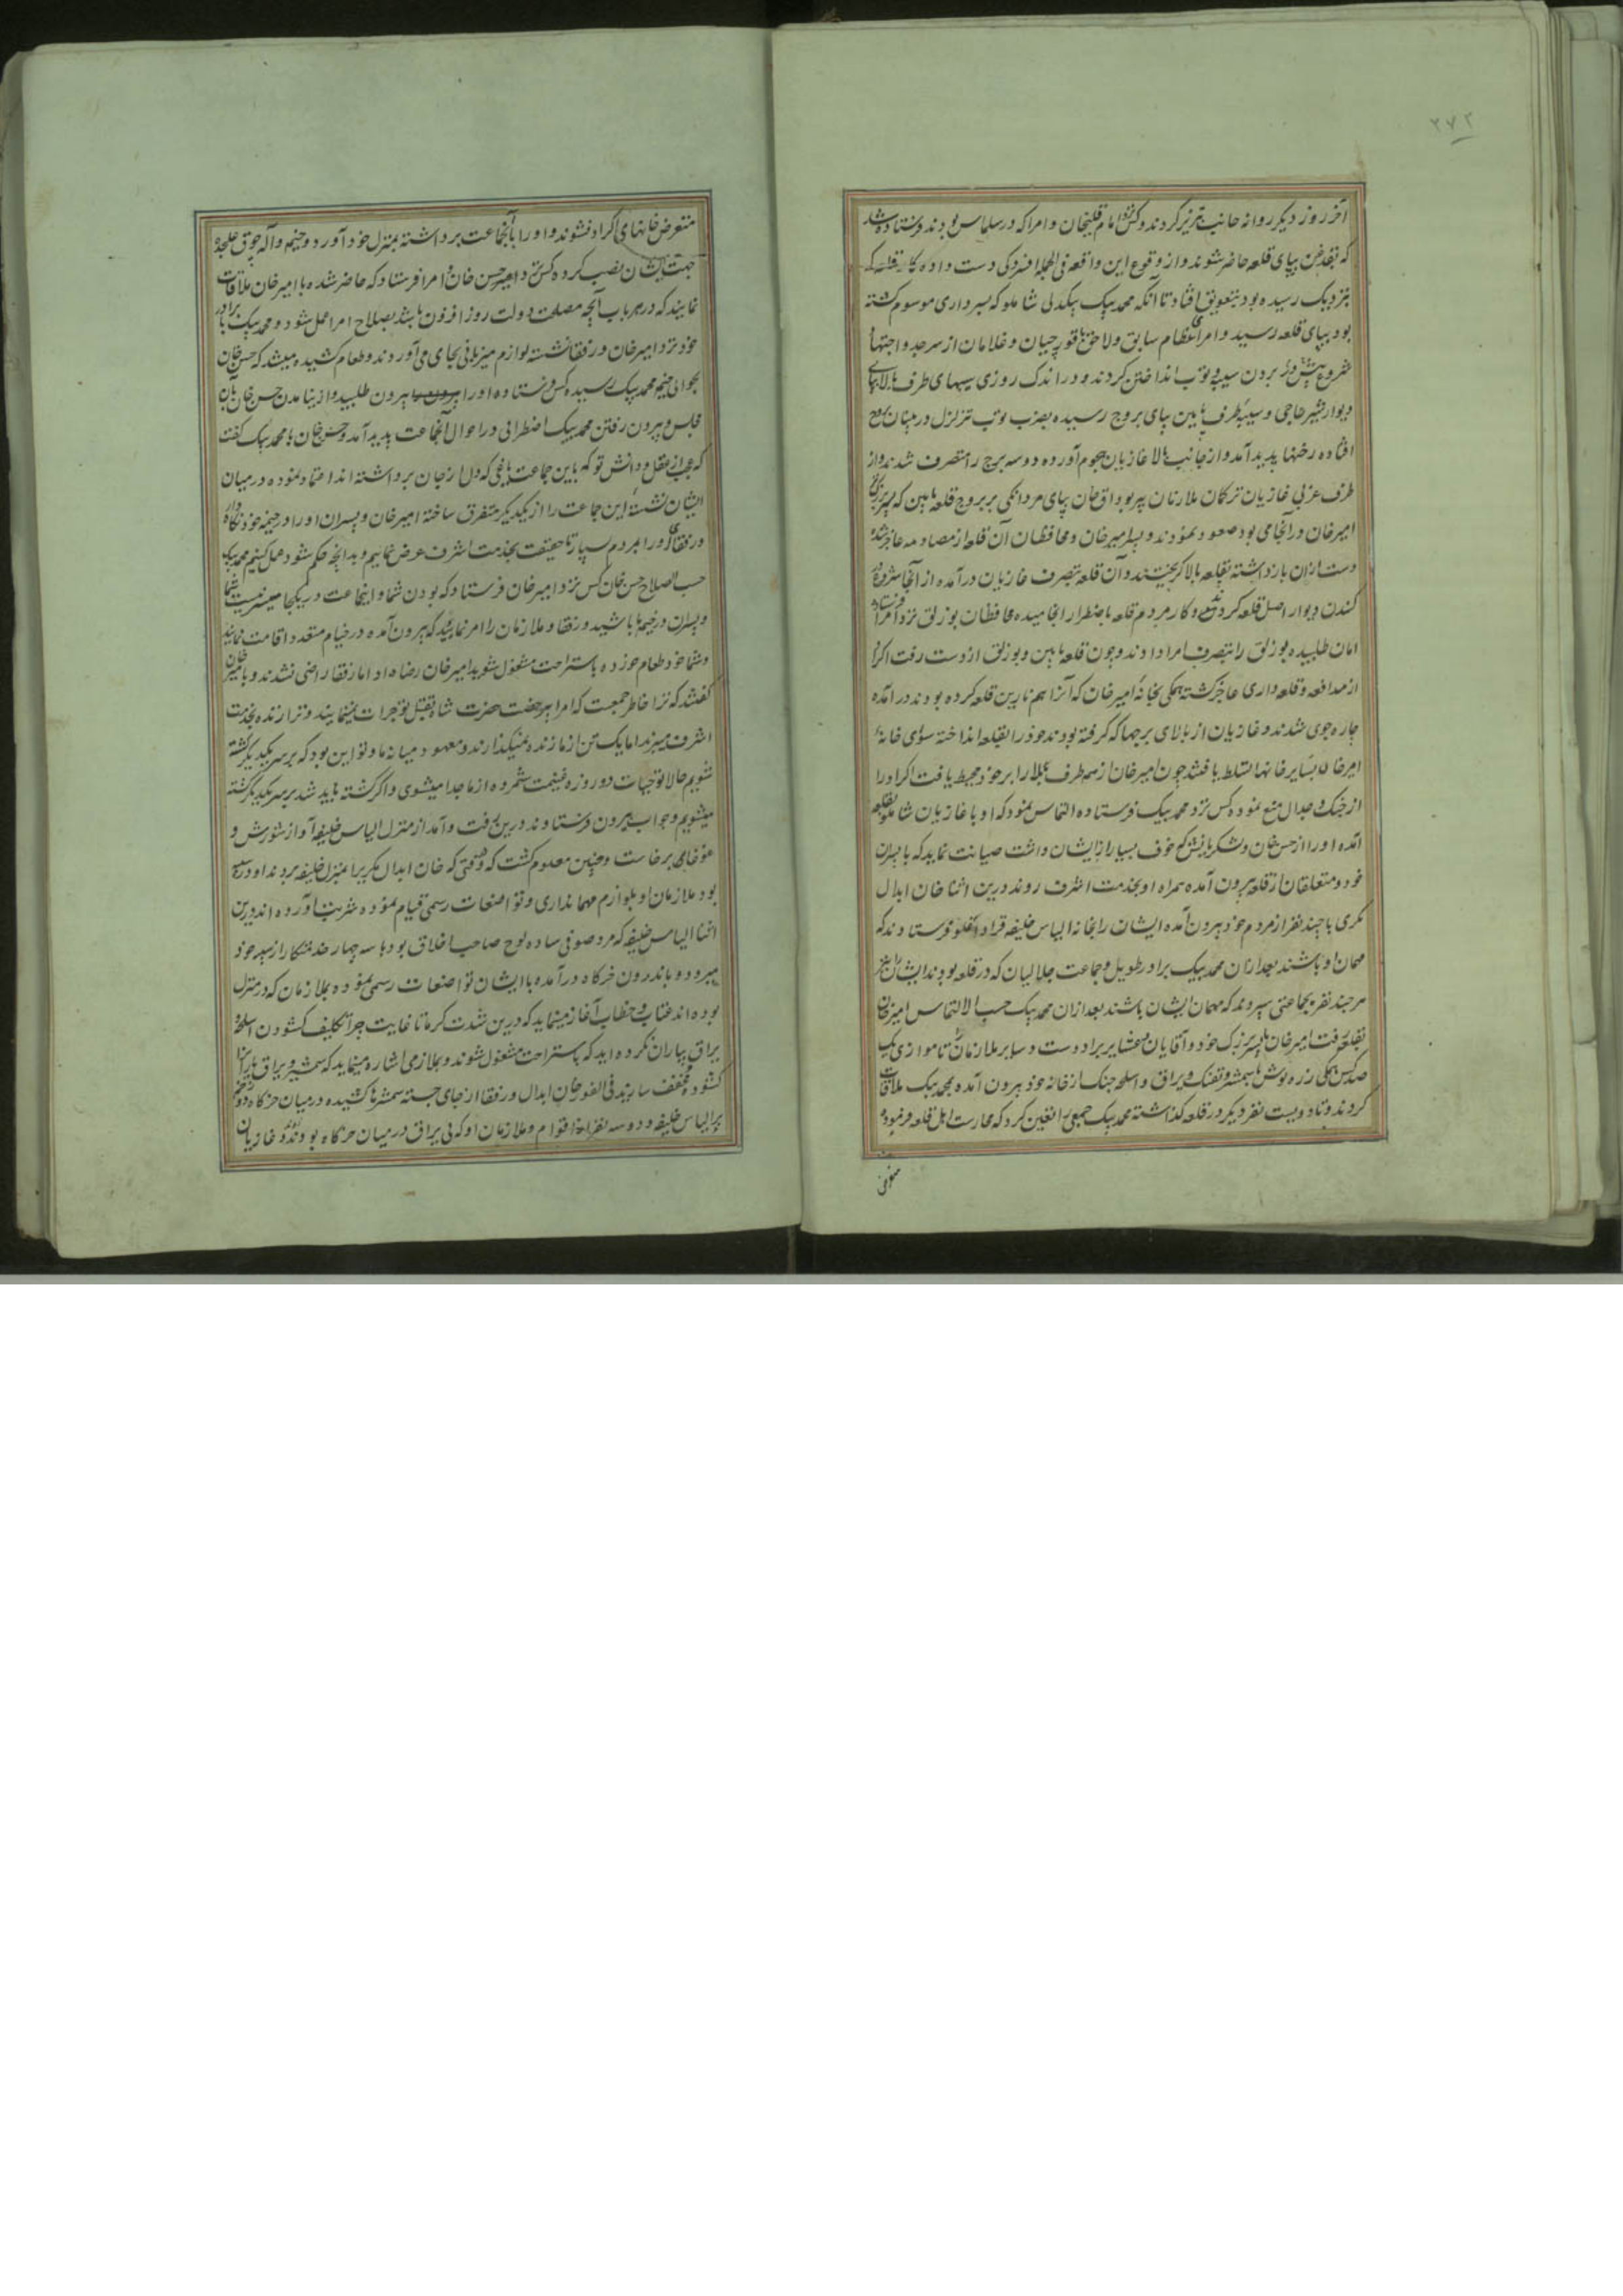 ۲۷۲
آخر روز دیگر روانه جانب تبریز کردند و کس نزد امام قلیخان و امرا که در سلماس بودند فرستاده شد
که بقدغن بپای قلعه حاضر شوند و از وقوع این واقعه فی الجمله افسردگی دست داده کار قلعه که
بنزدیک رسیده بود بتعویق افتاد تا آنکه محمد بیک بیکدلی شاملو که بسرداری موسوم گشته
بود بپای قلعه رسید و امرای عظام سابق و لاحق با قورچیان و غلامان از سر جد و اجتهاد
شروع در پیش بردن سیبه و توپ انداختن کردند و در اندک روزی سیبهای طرف بالا بپای
دیوار شیر حاجی و سیبه طرف پایین بپای بروج رسیده بضرب توپ تزلزل در بنیان بروج
افتاده رخنها پدید آمد و از جانب بالا غازیان هجوم آورده دو سه برج را متصرف شدند و از
طرف غربی غازیان ترکمان ملازمان پیر بوداق خان بپای مردانگی بر بروج قلعه پایین که پسر بزرگ
امیر خان در آنجا می بود صعود نمودند و پسر امیر خان و محافظان آن قلعه از مصادمه عاجز شده
دست ازان بازداشته بقلعه بالا گریختند و آن قلعه بتصرف غازیان درآمده از آنجا شروع در
کندن دیوار اصل قلعه کردند و کار مردم قلعه باضطرار انجامیده محافظان بوزلق نزد امرا فرستاده
امان طلبیده بوزلق را بتصرف امرا دادند و چون قلعه پایین و بوزلق از دست رفت اکراد
از مدافعه و قلعه داری عاجز گشته همگی بخانه امیر خان که آنرا هم نارین قلعه کرده بودند درآمده
چاره جوی شدند و غازیان از بالای برجها که گرفته بودند خود را بقلعه انداخته سوای خانه
امیر خان بسایر خانها تسلط یافتند چون امیر خان از همه طرف بلا را بر خود محیط یافت اکراد را
از جنک و جدال منع نموده کس نزد محمد بیک فرستاده التماس نمود که او با غازیان شاملو بقلعه
آمده او را از حسن خان و لشکریانش که خوف بسیار از ایشان داشت صیانت نماید که با پسران
خود و متعلقان از قلعه بیرون آمده همراه او بخدمت اشرف روند درین اثنا خان ابدال
مکری با چند نفر از مردم خود بیرون آمده ایشان را بخانه الیاس خلیفه قراداغلو فرستادند که
مهمان او باشند بعد ازان محمد بیک برادر طویل و جماعت جلالیان که در قلعه بودند ایشان را نیز
هر چند نفر بجماعتی سپردند که مهمان ایشان باشند بعد ازان محمد بیک حسب الالتماس امیر خان
بقلعه رفت امیر خان با پسر بزرک خود و آقایان و عشایر برادوست و سایر ملازمان تا موازی یک
صد کس همگی زره پوش با شمشیر و تفنک و یراق و اسلحه جنک از خانه خود بیرون آمده بمحمد بیک ملاقات
کردند و تا دویست نفر دیگر در قلعه گذاشته محمد بیک جمعی را تعین کرد که محارست اهل قلعه فرمود
متعرض خانهای اکراد نشوند و او را با آنجماعت برداشته بمنزل خود آورد و خیمه و آلاچوق علیحده
جهت ایشان نصب کرده کس نزد حسن خان و امرا فرستاد که حاضر شده با امیر خان ملاقات
نمایند که در هر باب آنچه مصلحت دولت روز افزون باشد بصلاح امرا عمل شود و محمد بیک با برادر
خود نزد امیر خان و رفقا نشسته لوازم میزبانی بجای می آوردند و طعام کشیده میشد که حسن خان
بحوالی خیمه محمد بیک رسیده کس فرستاده او را بیرون طلبید و از نیامدن حسن خان بآن
مجلس و بیرون رفتن محمد بیک اضطرابی در احوال آنجماعت پدید آمد و حسن خان با محمد بیک گفت
که عجب از عقل و دانش تو که باین جماعت یاغی که دل از جان برداشته اند اعتماد نموده در میان
ایشان نشسته این جماعت را از یکدیگر متفرق ساخته امیر خان و پسران او را در خیمه خود نگاه دار
و رفقای او را بمردم بسپار تا حقیقت بخدمت اشرف عرض نماییم و بدانچه حکم شود عمل کنیم محمد بیک
حسب الصلاح حسن خان کس نزد امیر خان فرستاد که بودن شما و اینجماعت در یکجا میسر نیست شما
و پسران در خیمه باشید و رفقا و ملازمان را امر نمائید که بیرون آمده در خیام متعدد اقامت نمایند
و شما خود طعام خورده باستراحت مشغول شوید امیر خان رضا داد اما رفقا راضی نشدند و با امیر خان
گفتند که ترا خاطر جمعست که امرا بی رخصت حضرت شاه بقتل تو جرات نمینمایند و ترا زنده بخدمت
اشرف میبرند اما یک تن از ما زنده نمیگذارند و معهود میانه ما و تو این بود که بر سر یکدیگر کشته
شویم حالا تو حیات دو روزه غنیمت شمرده از ما جدا میشوی و اگر کشته باید شد بر سر یکدیگر کشته
میشویم و جواب بیرون فرستادند درین رفت و آمد از منزل الیاس خلیفه آواز شورش و
غوغای برخاست و چنین معلوم گشت که وقتی که خان ابدال مکری را بمنزل خلیفه بردند او در سیبه
بود ملازمان او بلوازم مهمانداری و تواضعات رسمی قیام نموده شربت آورده اند درین
اثنا الیاس خلیفه که مرد صوفی ساده لوح صاحب اخلاق بود با سه چهار خدمتکار از سیبه خود
میرود و باندرون خرگاه درآمده با ایشان تواضعات رسمی نموده بملازمان که در منزل
بوده اند عتاب و خطاب آغاز مینماید که درین شدت گرما تا غایت چرا تکلیف گشودن اسلحه و
یراق بیاران نکرده اید که باستراحت مشغول شوند و بملازمی اشاره مینماید که شمشیر و یراق یاران را
گشوده مخفف سازند فی الفور خان ابدال و رفقا از جای جسته شمشیرها کشیده در میان خرگاه زخم
بر الیاس خلیفه و دو سه نفر از اقوام و ملازمان او که بی یراق در میان خرگاه بودند زدند و غازیان